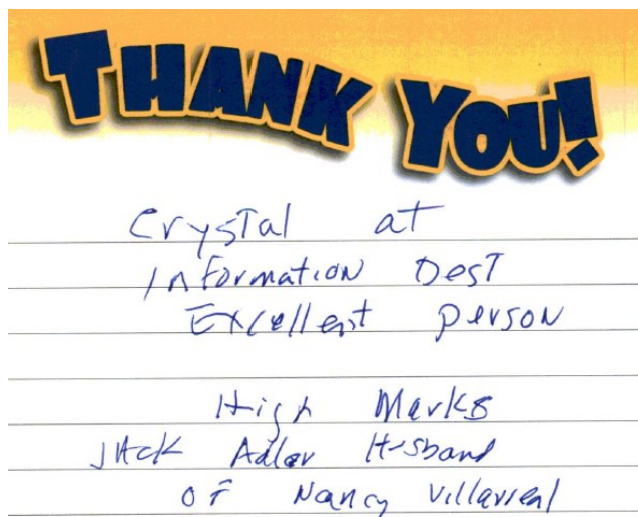 THANK YOU!
Crystal at
Information Dest
Excellent person
High Marks
JAck Adler Husband
OF Nancy Villarreal